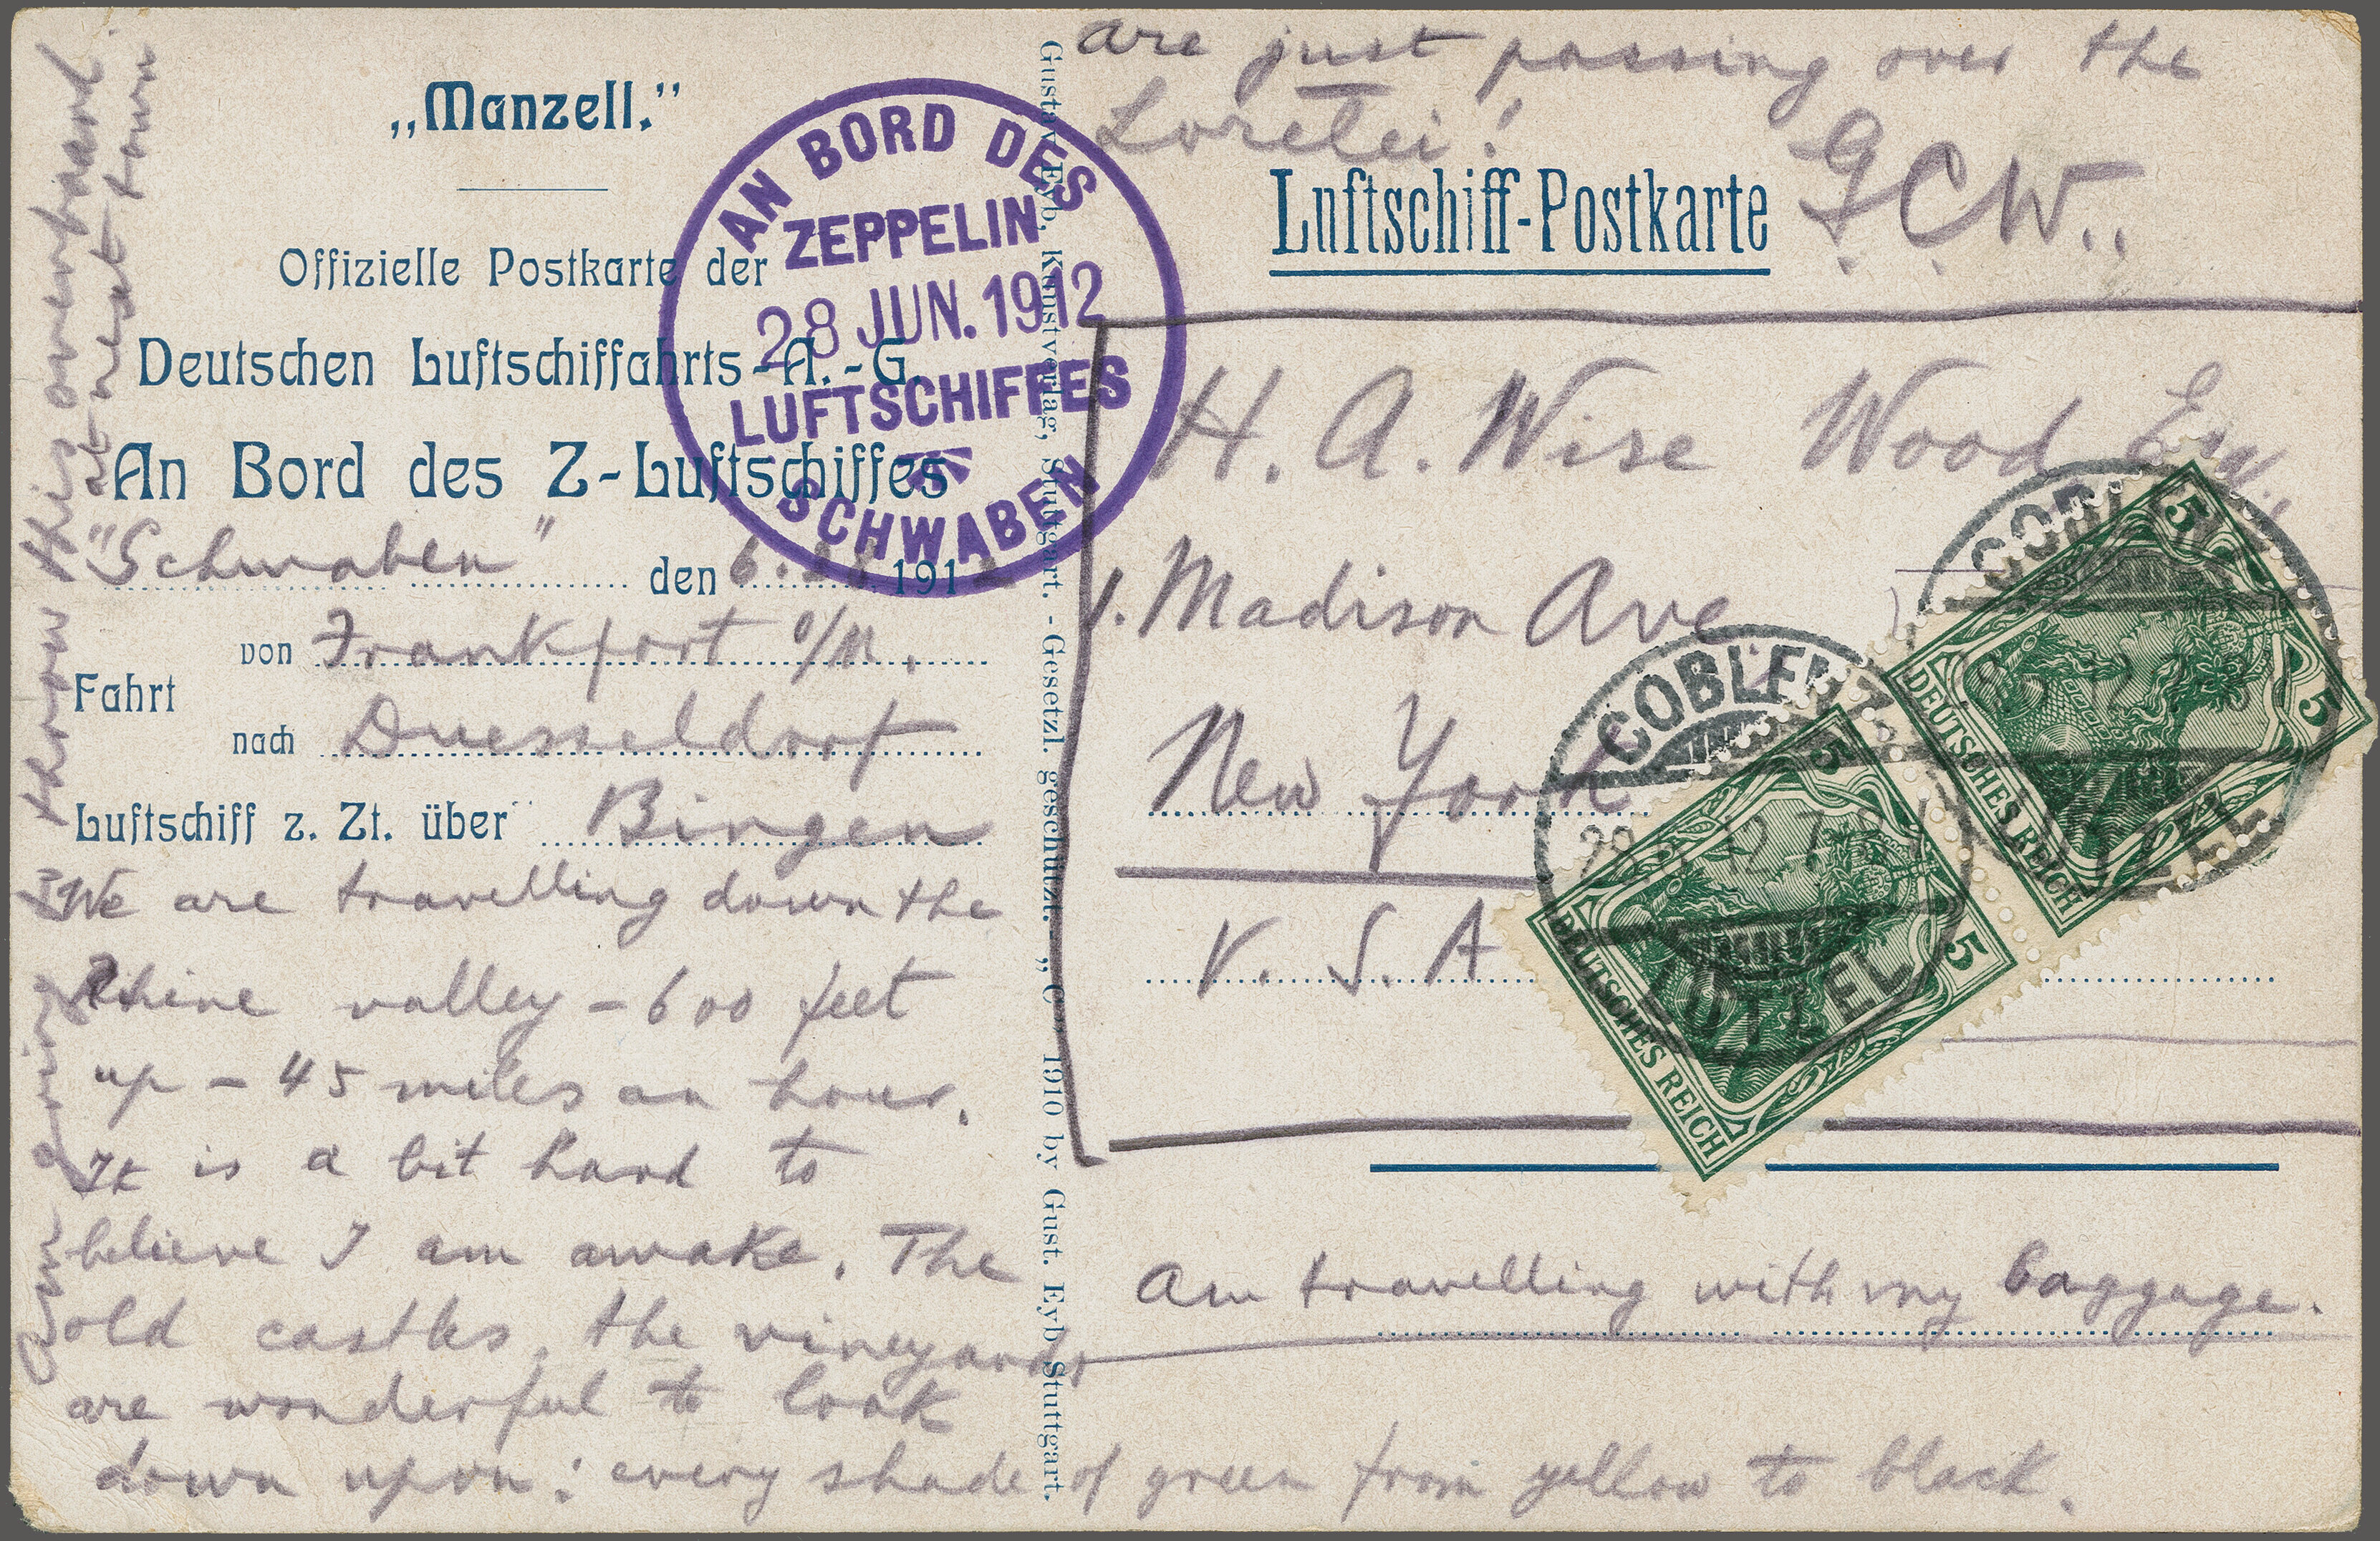 „Manzell.”
Offizielle Postkarte der
Deutschen Luftschiffahrts-A.-G.
An Bord des Z-Luftschiffes
"Schwaben" den 6. 28 1912
Fahrt
von Frankfort o/M.
nach Duesseldorf
Luftschiff z. Zt. über Bingen
We are travelling down the
Rhine valley - 600 feet
up - 45 miles an hour.
It is a bit hard to
believe I am awake. The
old castles, the vineyards
are wonderful to look
down upon: every shade of green from yellow to black.
Am travelling with my baggage.
Am going to throw this overboard
at next town
are just passing over the
Lorelei!
G.C.W.
AN BORD DES
ZEPPELIN
28 JUN. 1912
LUFTSCHIFFES
SCHWABEN
Gustav Eyb, Kunstverlag, Stuttgart. - Gesetzl. geschützt. - „C” 1910 by Gust. Eyb Stuttgart.
Luftschiff-Postkarte
H. A. Wise Wood Esq.,
1. Madison Ave
New York
U. S. A
COBLENZ
LÜTZEL
5 5
DEUTSCHES REICH
COBLENZ
LÜTZEL
5 5
DEUTSCHES REICH